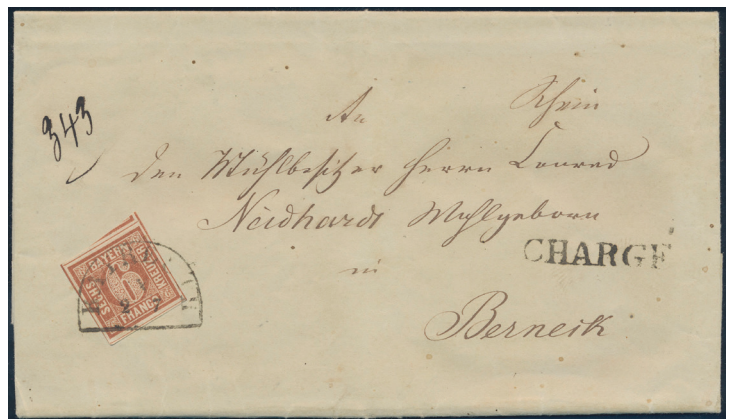 343
An
den Mühlbesitzer Herrn Conrad
Neidhardt Wohlgeborn
in
Berneck
CHARGE
BAYERN
SECHS
KREUZER
FRANCO
6